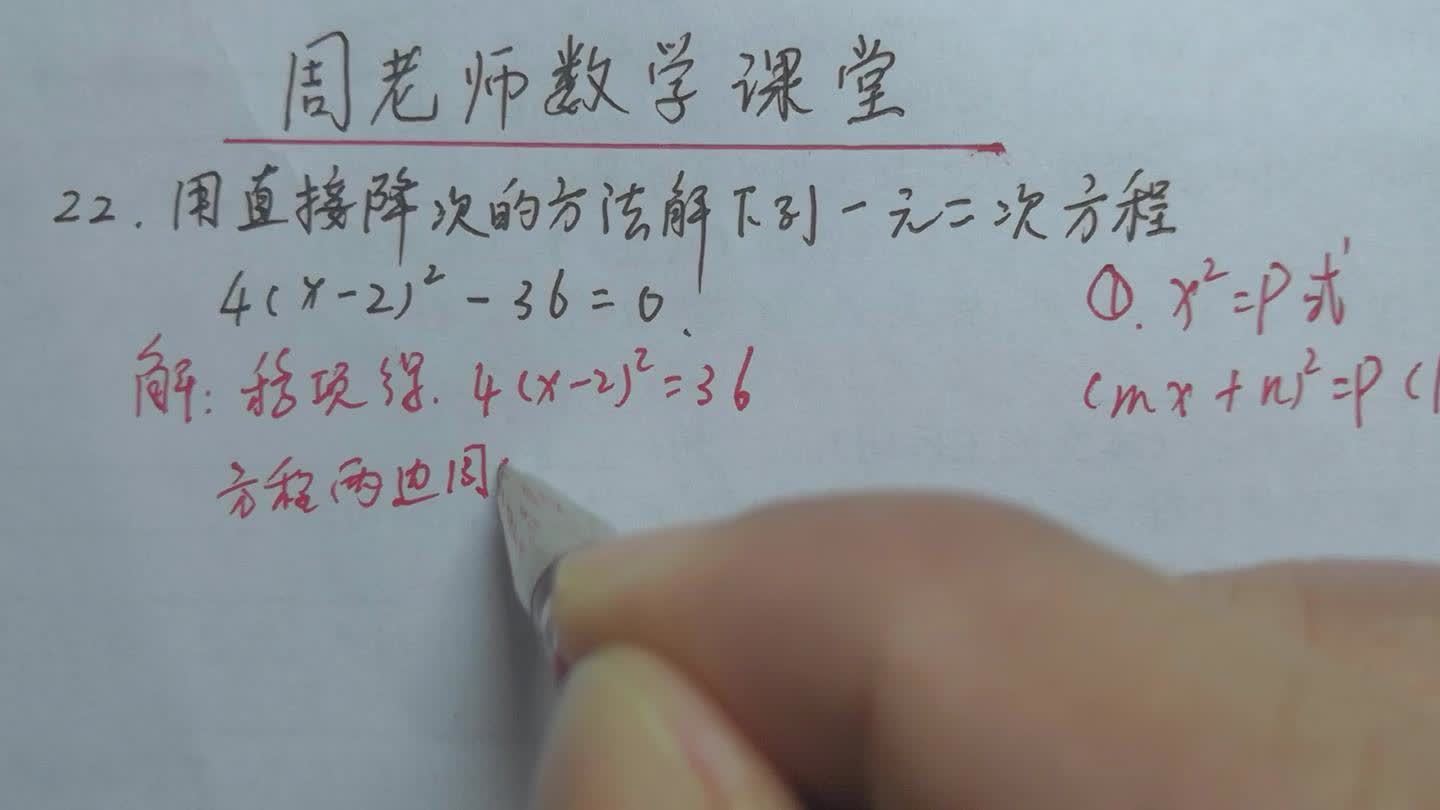 周老师数学课堂
22.用直接降次的方法解下列一元二次方程
4(x-2)²-36=0.
解:移项得.4(x-2)²=36
方程两边同
①.x²=P式
(mx+n)²=P(